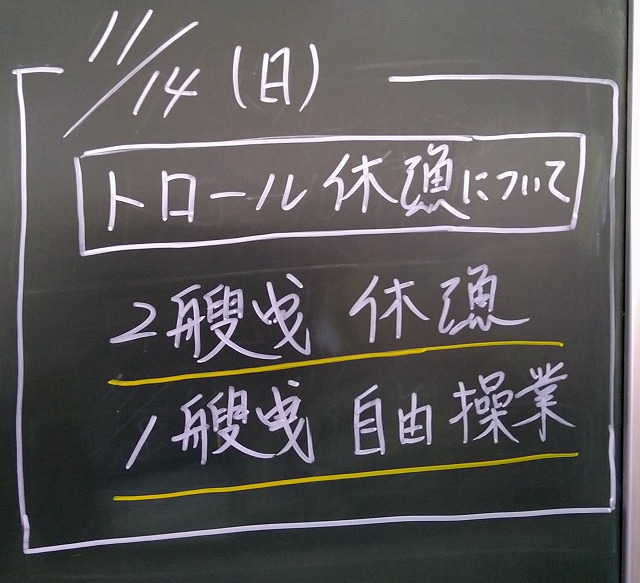 11/14(日)
トロール休漁について
2艘曳 休漁
1艘曳 自由操業